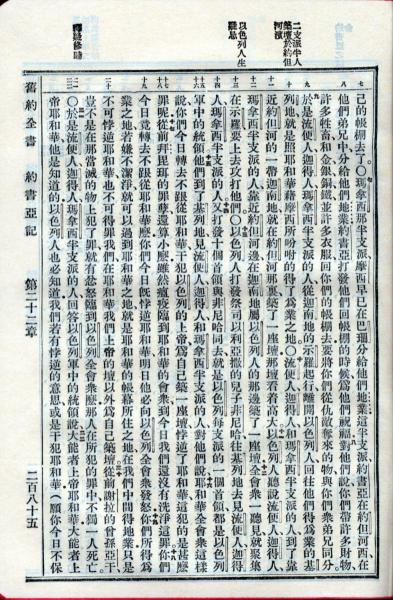 二支派半人
築壇於約但
河濱
以色列人生
疑忌
釋疑修睦
己的帳棚去了〇瑪拿西那半支派摩西早已在巴珊分給他們地業這半支派約書亞在約但河西在
他們弟兄中分給他們地業約書亞打發他們回帳棚的時候爲他們祝福對他們說你們帶許多財物
許多牲畜和金銀銅鐵並許多衣服回你們的帳棚去要將你們從仇敵奪來的物與你們衆弟兄同分
於是流便人迦得人瑪拿西半支派的人從迦南地的示羅起行離開以色列人回往他們得爲業的基
列地就是照耶和華藉摩西所吩咐的得了爲業之地〇流便人迦得人和瑪拿西半支派的人到了靠
近約但河的一帶迦南地就在約但河那裏築了一座壇那壇看着高大以色列人聽說流便人迦得人
瑪拿西半支派的人靠近約但河邊在迦南地屬以色列人的那邊築了一座壇全會衆一聽見就聚集
在示羅要上去攻打他們〇以色列人打發祭司以利亞撒的兒子非尼哈往基列地去見流便人迦得
人瑪拿西半支派的人又打發十個首領與非尼哈同去就是以色列每支派的一個首領都是以色列
軍中的統領他們到了基列地見流便人迦得人和瑪拿西半支派的人對他們說耶和華全會衆這樣
說你們今日轉去不跟從耶和華干犯以色列的上帝爲自己築一座壇悖逆了耶和華這犯的是甚麼
罪呢從前拜毘珥的罪孽還算小麼雖然瘟疫臨到耶和華的會衆到今日我們還沒有洗淨這罪你們
今日竟轉去不跟從耶和華麼你們今日既悖逆耶和華明日他必向以色列全會衆發怒你們所得爲
業之地若嫌不潔淨就可以過到耶和華之地就是耶和華的帳幕所住之地在我們中間得地業只是
不可悖逆耶和華也不可得罪我們在耶和華我們上帝的壇以外爲自己築壇從前謝拉的曾孫亞干
豈不是在那當滅的物上犯了罪就有忿怒臨到以色列全會衆麼那人在所犯的罪中不獨一人死亡
〇於是流便人迦得人瑪拿西半支派的人回答以色列軍中的統領說大能者上帝耶和華大能者上
帝耶和華他是知道的以色列人也必知道我們若有悖逆的意思或是干犯耶和華(願你今日不保
舊約全書 約書亞記 第二十二章 二百八十五